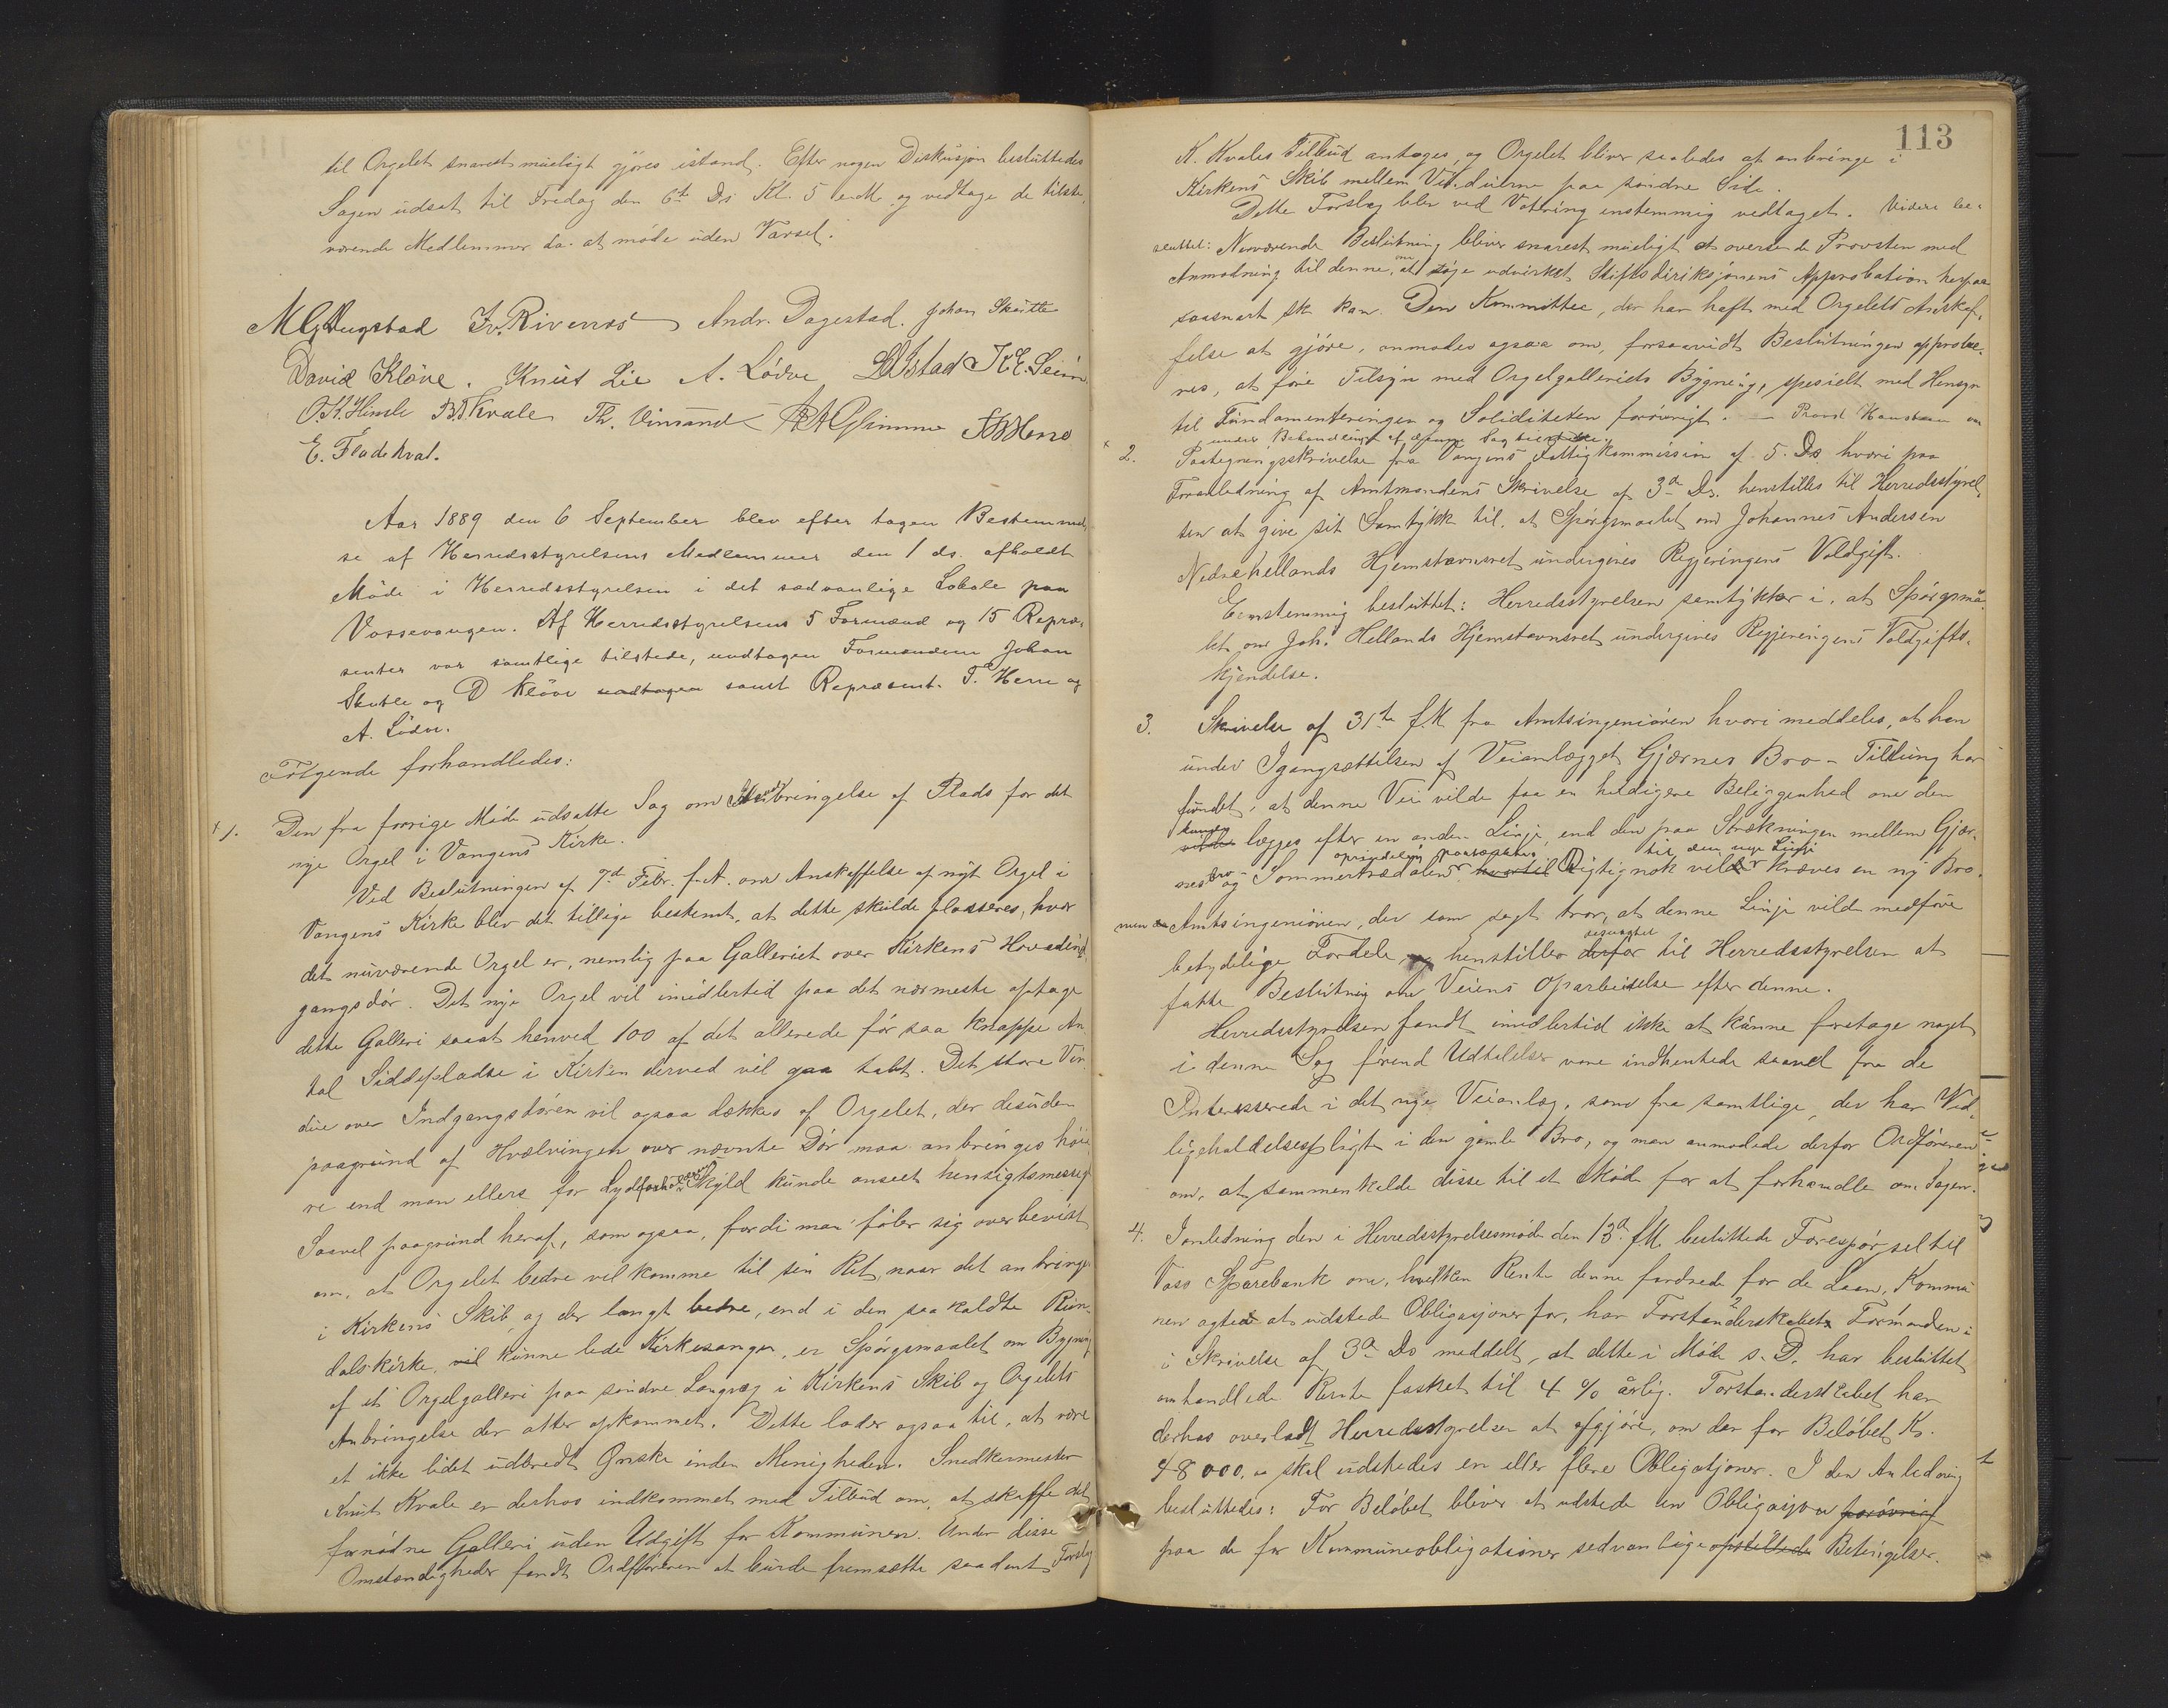 til Orgelet snarest mueligt gjöres istand. Efter nogen Diskusjon besluttedes
Sagen udsat til Fredag den 6te Ds Kl. 5 e.M. og vedtage de tilste-
værende Medlemmer da at möde uden Varsel.
M G Rugstad Iv. Rivenæs Andr. Dagestad. Johan Skutle
David Klöve. Knut Lie A. Lödve K.E. Seim
O.K. Himle B. Kvale Th. Vinsand Glimme
E. Fladekval.
Aar 1889 den 6 September blev efter tagen Bestemmel-
se af Herredsstyrelsens Medlemmer den 1 ds. afholdt
Möde i Herredsstyrelsen i det sædvanlige Lokale paa
Vossevangen. Af Herredsstyrelsens 5 Formænd og 15 Repræ-
senter var samtlige tilstede, undtagen Formændene Johan
Skutle og D Klöve undtagen samt Repræsent. T. Herre og
A. Lödve.
Fölgende forhandledes:
1. Den fra forrige Möde udsatte Sag om Anbringelse af Plads for det
nye Orgel i Vangens Kirke.
Ved Beslutningen af 7d Febr. f.A. om Anskaffelse af nyt Orgel i
Vangens Kirke blev det tillige bestemt, at dette skulde plasseres, hvor
det nuværende Orgel er, nemlig paa Galleriet over Kirkens Hovedind-
gangsdör. Det nye Orgel vil imidlertid paa det nærmeste optage
dette Galleri saaat henved 100 af det allerede för saa knappe An-
tal Siddepladse i Kirken derved vil gaa tabt. Det store Vin-
due over Indgangsdören vil ogsaa dækkes af Orgelet, der desuden
paagrund af Hvælvingen over nævnte Dör maa anbringes höie-
re end man ellers for Lydforholdenes Skyld kunde anseet hensigtsmessig
Saavel paagrund heraf, som ogsaa, fordi man föler sig overbevist
om, at Orgelet bedre vil komme til sin Ret, naar det anbringes
i Kirkens Skib, og der langt bedre, end i den saakaldte Run-
dalskirke, vil kunne lede Kirkesangen, er Spörgsmaalet om Bygning
af et Orgelgalleri paa söndre Langvæg i Kirkens Skib og Orgelets
Anbringelse der atter opkommet. Dette lader ogsaa til, at være
et ikke lidet udbredt Önske inden Menigheden. Snedkermester
Knut Kvale er derhos indkommet med Tilbud om, at skaffe det
fornödne Galleri uden Udgift for Kommunen. Under disse
Omstændigheder fandt Ordföreren at burde fremsætte saadant Forslag
113
K. Kvales Tilbud antages, og Orgelet bliver saaledes at anbringe i
Kirkens Skib mellem Vinduerne paa söndre Side.
Dette Forslag blev ved Votering enstemmig vedtaget. Videre be-
sluttet: Nærværende Beslutning bliver snarest mueligt at oversende Provsten med
Anmodning til denne, om at söge udvirket Stiftsdireksjonens Approbation herpaa
saasnart ske kan. Den Kommittee, der har haft med Orgelets Anskaf-
felse at gjöre, anmodes ogsaa om, forsaavidt Beslutningen approbe-
res, at före Tilsyn med Orgelgalleriets Bygning, spesielt med Hensyn
til Fundamenteringen og Soliditeten forövrigt. — Provst
under Behandlingen af denne Sag tilstede.
2. Paategningsskrivelse fra Vangens Fattigkommission af 5. Ds. hvori paa
Foranledning af Amtmandens Skrivelse af 3d Ds. henstilles til Herredsstyrel-
sen at give sit Samtykke til, at Spörgsmaalet om Johannes Andersen
Nedrehellands Hjemstavnsret undergives Regjeringens Voldgift.
Eenstemmig besluttet: Herredsstyrelsen samtykker i, at Spörgsmaa-
let om Joh. Hellands Hjemstavnsret undergives Regjeringens Voldgifts-
kjendelse.
3. Skrivelse af 31te f.M. fra Amtsingeniören hvori meddeles, at han
under Igangsættelsen af Veianlægget Gjærnes Bro – Tillung har
fundet, at denne Vei vilde faa en heldigere Beliggenhed om den
kunde
vilde lægges efter en anden Linje, end den paa Strækningen mellem Gjær-
oprindelig paatænkte, til den nye Linje
nes Bro og Sommertrædalen hvortil Rigtignok vilde kræves en ny Bro,
men Amtsingeniören, der som sagt tror, at denne Linje vilde medföre
desuagtet
betydelige Fordele, og henstiller derfor til Herredsstyrelsen at
fatte Beslutning om Veiens Oparbeidelse efter denne.
Herredsstyrelsen fandt imidlertid ikke at kunne foretage noget
i denne Sag förend Udtalelser vare indhentede saavel fra de
Interesserede i det nye Veianlæg, som fra samtlige, der har Ved-
ligeholdelsespligt i den gamle Bro, og man anmodede derfor Ordföreren
om, at sammenkalde disse til et Möde for at forhandle om Sagen.
4. I anledning den i Herredsstyrelsesmöde den 13d f.M. besluttede Forespörgsel til
Voss Sparebank om, hvilken Rente denne fordrede for de Laan, Kommu-
nen agtede at udstede Obligasjoner for, har Forstanderskabets Formanden i
i Skrivelse af 3d Ds meddelt, at dette i Möde s. D. har besluttet
omhandlede Rente fastsat til 4 % årlig. Forstanderskabet har
derhos overladt Herredsstyrelsen at afgjöre, om der for Belöbet Kr.
48000,00 skal udstedes en eller flere Obligatjoner. I den Anledning
besluttedes: For Belöbet bliver at udstede en Obligasjon forövrigt
paa de for Kommuneobligationer sedvanlige opstillede Betingelser.